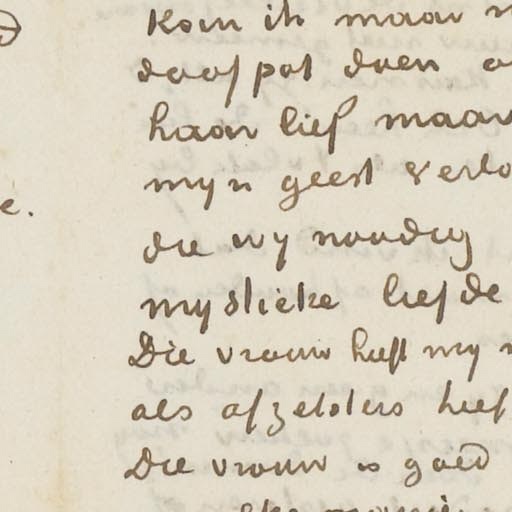 Kom ik maar
doofpot doen
haar lief maar
myn geest verlo
e.
die wy noodig
mystieke liefde
Die vrouw heeft my
als afzetsters heef
Die vrouw is goed